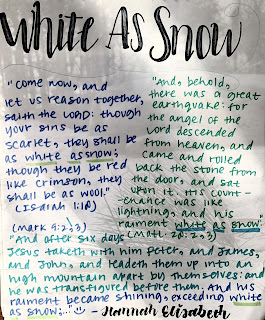 White As Snow
"Come now, and
let us reason together,
saith the LORD: though
your sins be as
scarlet, they shall be
as white as snow;
though they be red
like crimson, they
shall be as wool."
(Isaiah 1:18)
"And, behold,
there was a great
earthquake: for
the angel of the
Lord descended
from heaven, and
came and rolled
back the stone from
the door, and sat
upon it. His count-
enance was like
lightning, and his
raiment white as snow"
(Matt. 28: 2,3)
(Mark 9:2,3)
"And after six days
Jesus taketh with him Peter, and James,
and John, and leadeth them up into an
high mountain apart by themselves: and
he was transfigured before them. And his
raiment became shining, exceeding white
as snow;..." - Hannah Elizabeth